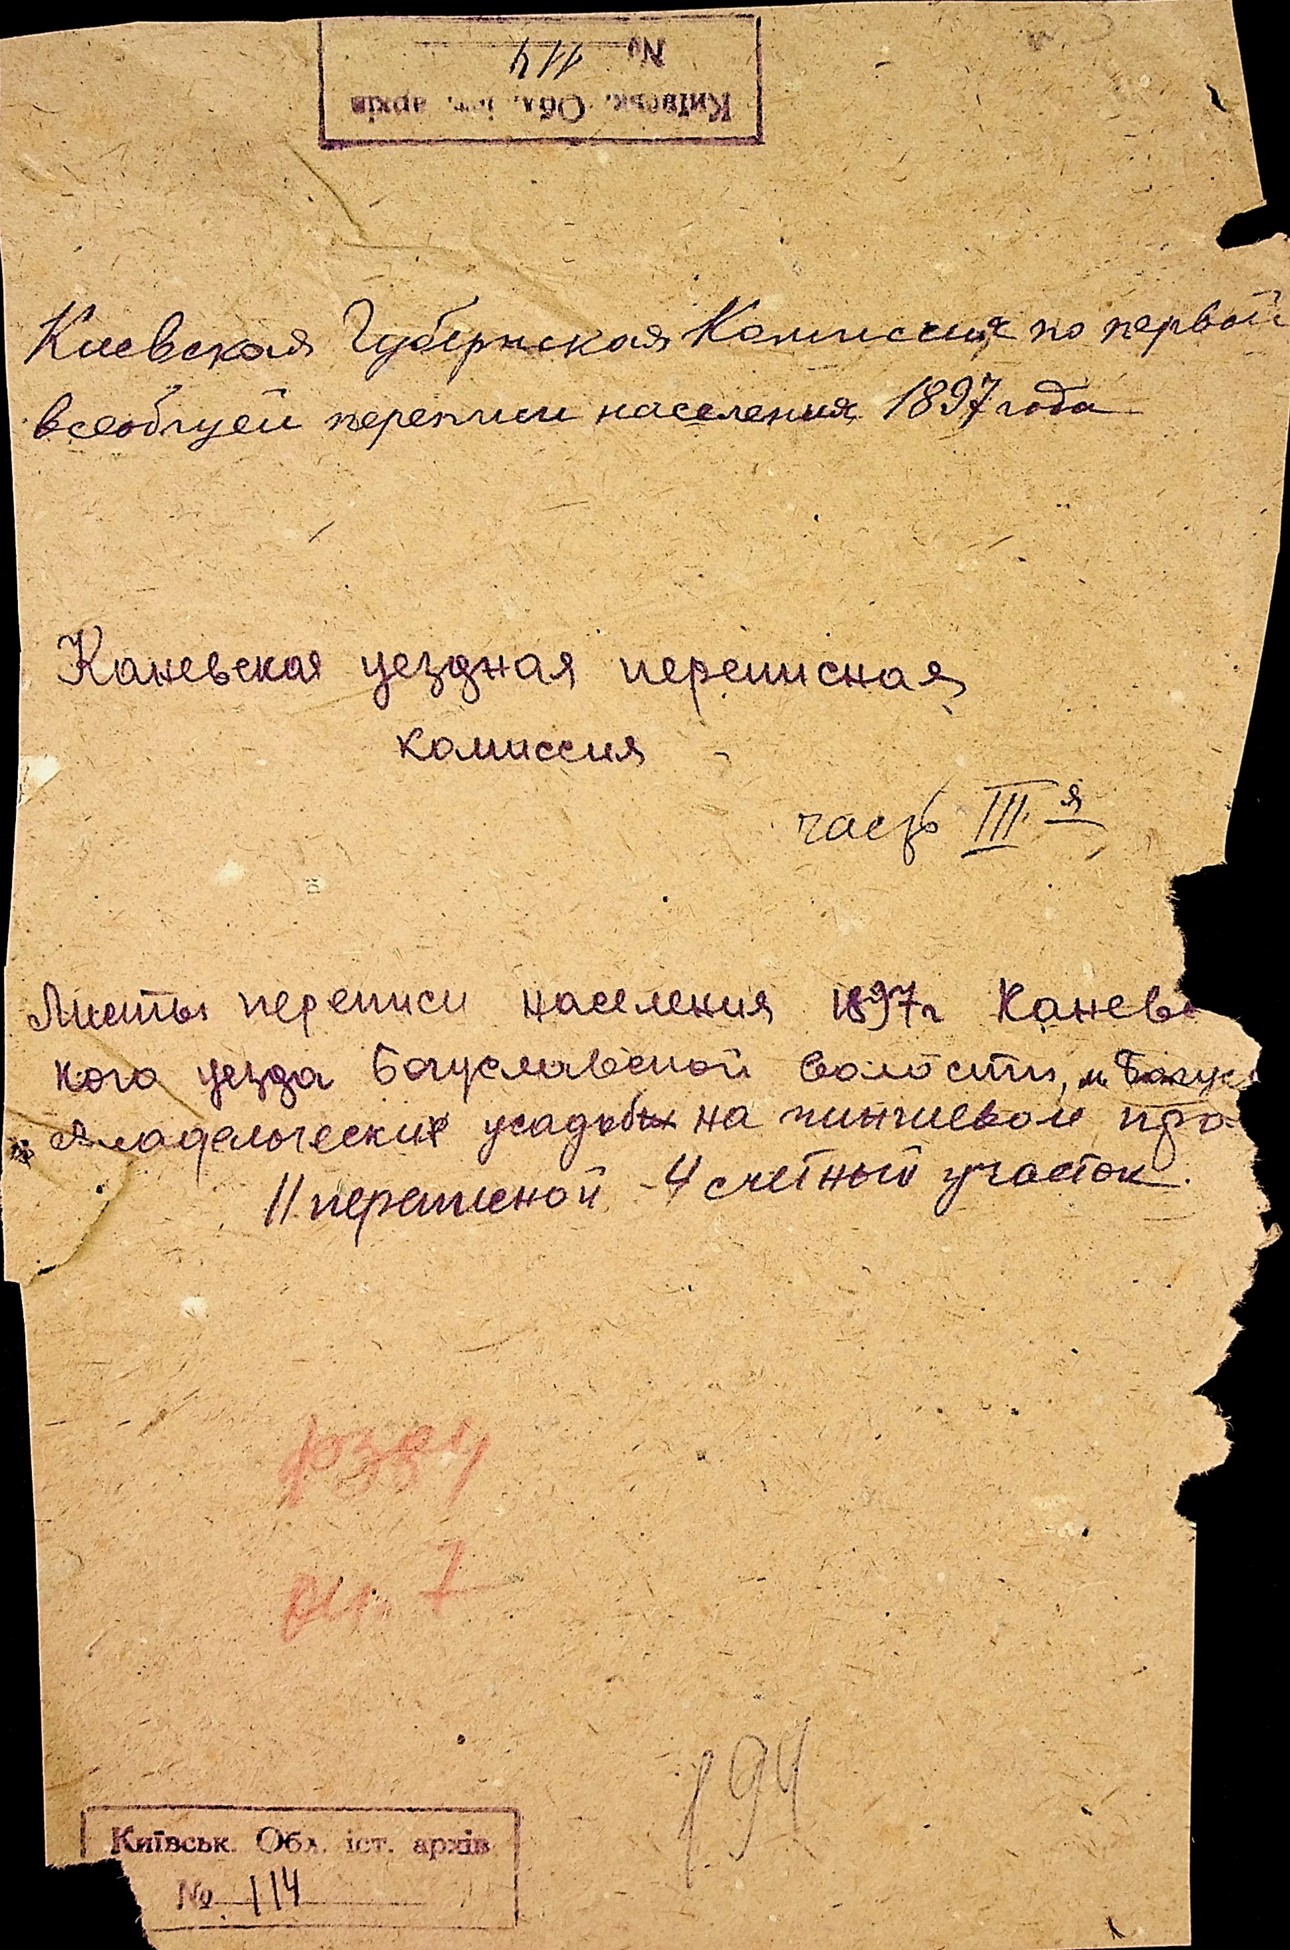 Київськ. Обл. іст. архів
№ 114
Киевская Губернская Комиссия по первой
всеобщей переписи населения 1897 года
Каневская уездная переписная
комиссия
часть III я
Листы переписи населения 1897г Каневс
кого уезда Богуславской волости, м. Богус
владельческих усадьбых на чиншевом пра
11 переписной - 4 счетный участок.
ф 384
оп. 7
194
Київськ. Обл. іст. архів
№ 114